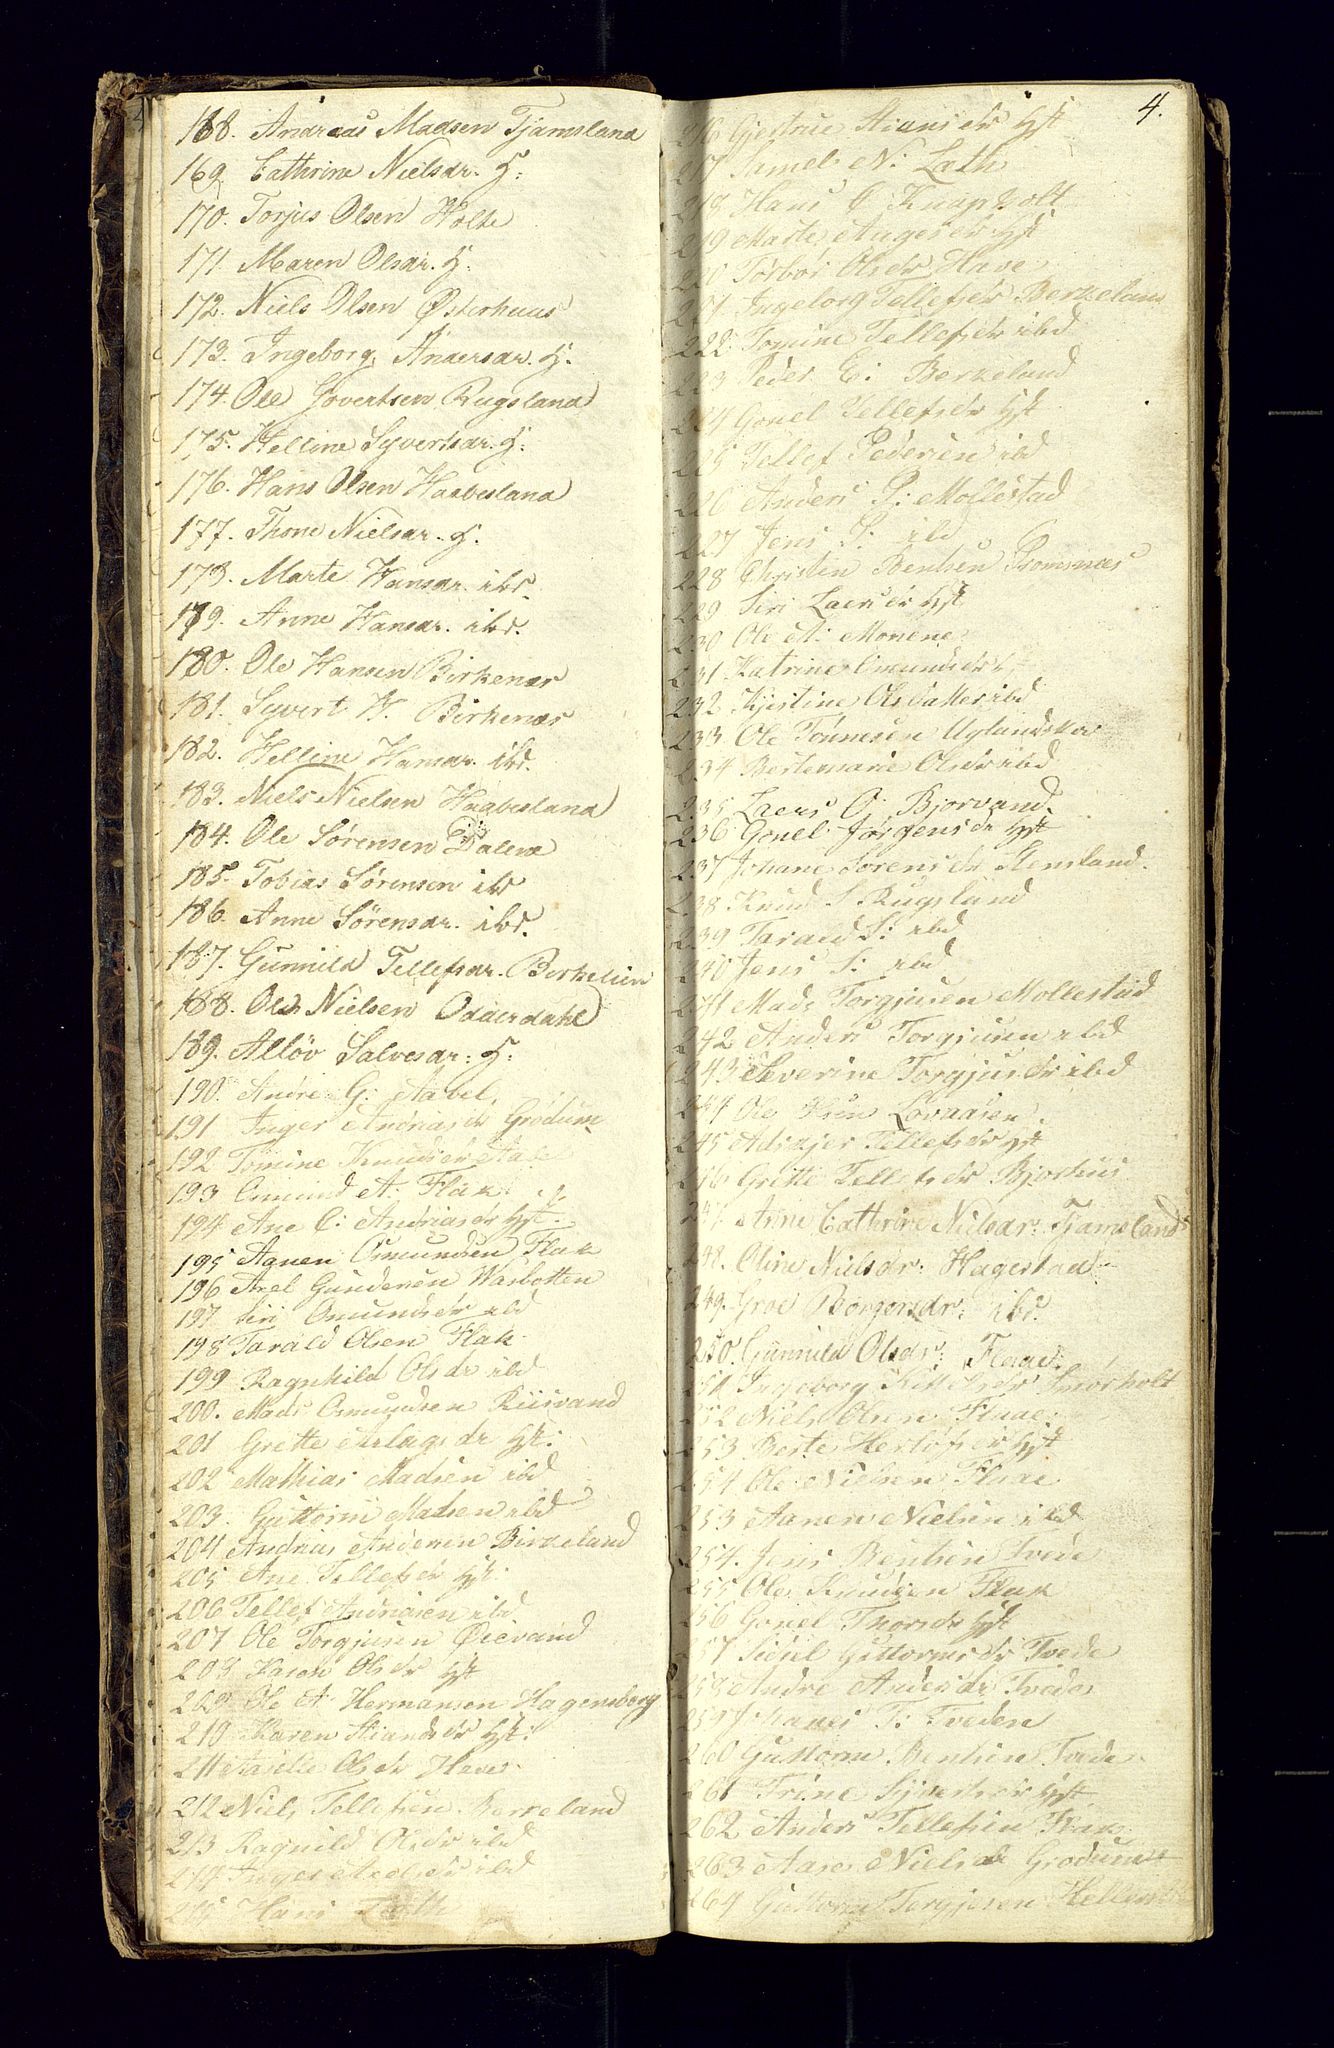 168. Andreas Madsen Tjamsland
169 Cathrine Nielsdr. H:
170. Torjus Olsen Holte
171. Maren Olsdr. H.
172. Niels Olsen Østerhuus
173. Ingeborg Andersdr. H.
174. Ole Sÿvertsen Rugsland
175. Helline Syvertsdr. H.
176. Hans Olsen Haabesland
177. Thone Nielsdr. H.
178. Marte Hansdr. ibd.
179. Anne Hansdr. ibd.
180. Ole Hansen Birkenæs
181. Syvert H. Birkenæs
182. Helline Hansdr. ibd.
183. Niels Nielsen Haabesland
184. Ole Sørensen Dalene
185. Tobias Sørensen ibd
186. Anne Sørensdr. ibd.
187. Gunnild Tellefsdr. Birkelien
188. Ole Nielsen Oddersdahl
189. Alløv Salvesdr: H.
190. Andre G: Aabel
191 Inger Andriasdr Grødum
192 Tomine Knudsdr Aabel
193 Omund A: Flak
194 Ane C: Andriasdr Hst:
195 Aanen Omundsen Flak
196 Axel Gundersen Wasbotten
197 Siri Omundsdr ibd
198 Tarald Olsen Flak
199 Ragnhild Olsdr ibd
200. Mads Omundsen Risvand
201 Grette Aslagsdr Hst:
202 Mathias Madsen ibd
203. Guttorm Madsen ibd
204 Andrias Andersen Birkeland
205 Ane Tellefsdr Hst.
206 Tellef Andriasen ibd
207 Ole Torgjusen Øievand
208 Karen Olsdr Hst
209 Ole A Hermansen Hagensborg
210 Karen Stiansdr Hst:
211 Aasille Olsdr Have
212 Niels Tellefsen Berkeland
213 Ragnild Olsdr ibd
214 Inger Neelsdr ibd
215 Hans Lath
4.
216 Gjertrue Stiansdr Hst
217 Samel N: Lath
218 Hans O Knapholt
219 Marte Aagesdr Hst
220 Torbor Olsdr Have
221 Ingeborg Tellefsdr Berkeland
222 Tomine Tellefsdr ibd
223 Peder E: Berkeland
224 Gonel Tellefsdr Hst
225 Tellef Pedersen ibd
226 Anders P: Mollestad
227 Jens P: ibd
228 Christen Bentsen Tromnæs
229 Siri Laersdr Hst
230 Ole A: Monene
231 Katrine Omundsdr
232 Kjestine Olsdatter ibd
233 Ole Tønnesen Uglandskov
234 Bertemarie Olsdr ibd
235 Laers O: Bjorvand
236 Gonel Jørgensdr Hst
237 Johane Sørensdr Stemland.
238 Knud S Rugsland
239 Tarald S: ibd
240 Jens S: ibd
241 Mads Torgjusen Mollestad
242 Anders Torgjusen ibd
243 Severine Torgjusdr ibd
244 Ole Lovaasen
245 Tellefsdr Hst
246 Grette Tellefsdr Bjorhus
247. Anne Cathrine Nielsdr: Tjamsland
248. Oline Nielsdr: Hagestad
249. Groe Børgersdr: ibd.
250. Gunnild Olsdr: Flaae:
251 Ingeborg Kittelsdr Smørholt
252 Niels Olsen Flaae:
253 Borte Herløfsdr Hst
254 Ole Nielsen Flaae
253 Aanen Nielsen ibd
254. Jens Bentsen Tvede
255 Ole Knudsen Flak
256 Gonel Thorsdr Hst
257 Sissel Guttormsdr Tvede
258 Andre Andersdr Tvede
259 T: Tveden
260 Guttorm Bentsen Tvede
261 Trine Syvertsdr Hst
262 Anders Tellefsen Flak
263 Aase Nielsdr Grodum
264 Guttorm Torgjusen